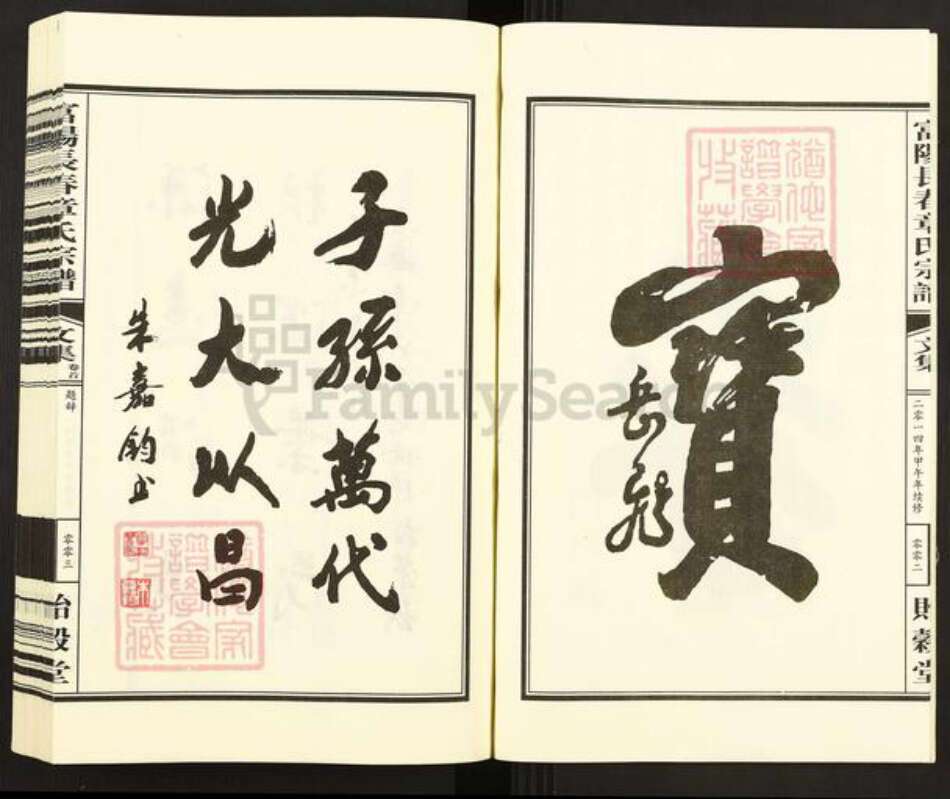 富陽長春章氏宗譜
文集
二零一四年甲午年续修
零零二
貽穀堂
寶
岳飛
子孫萬代
光大以昌
朱嘉鈞书
富陽長春章氏宗譜
文集
卷首
題辞
零零三
貽穀堂
譜學會
收藏
譜學會
收藏
FamilySearch